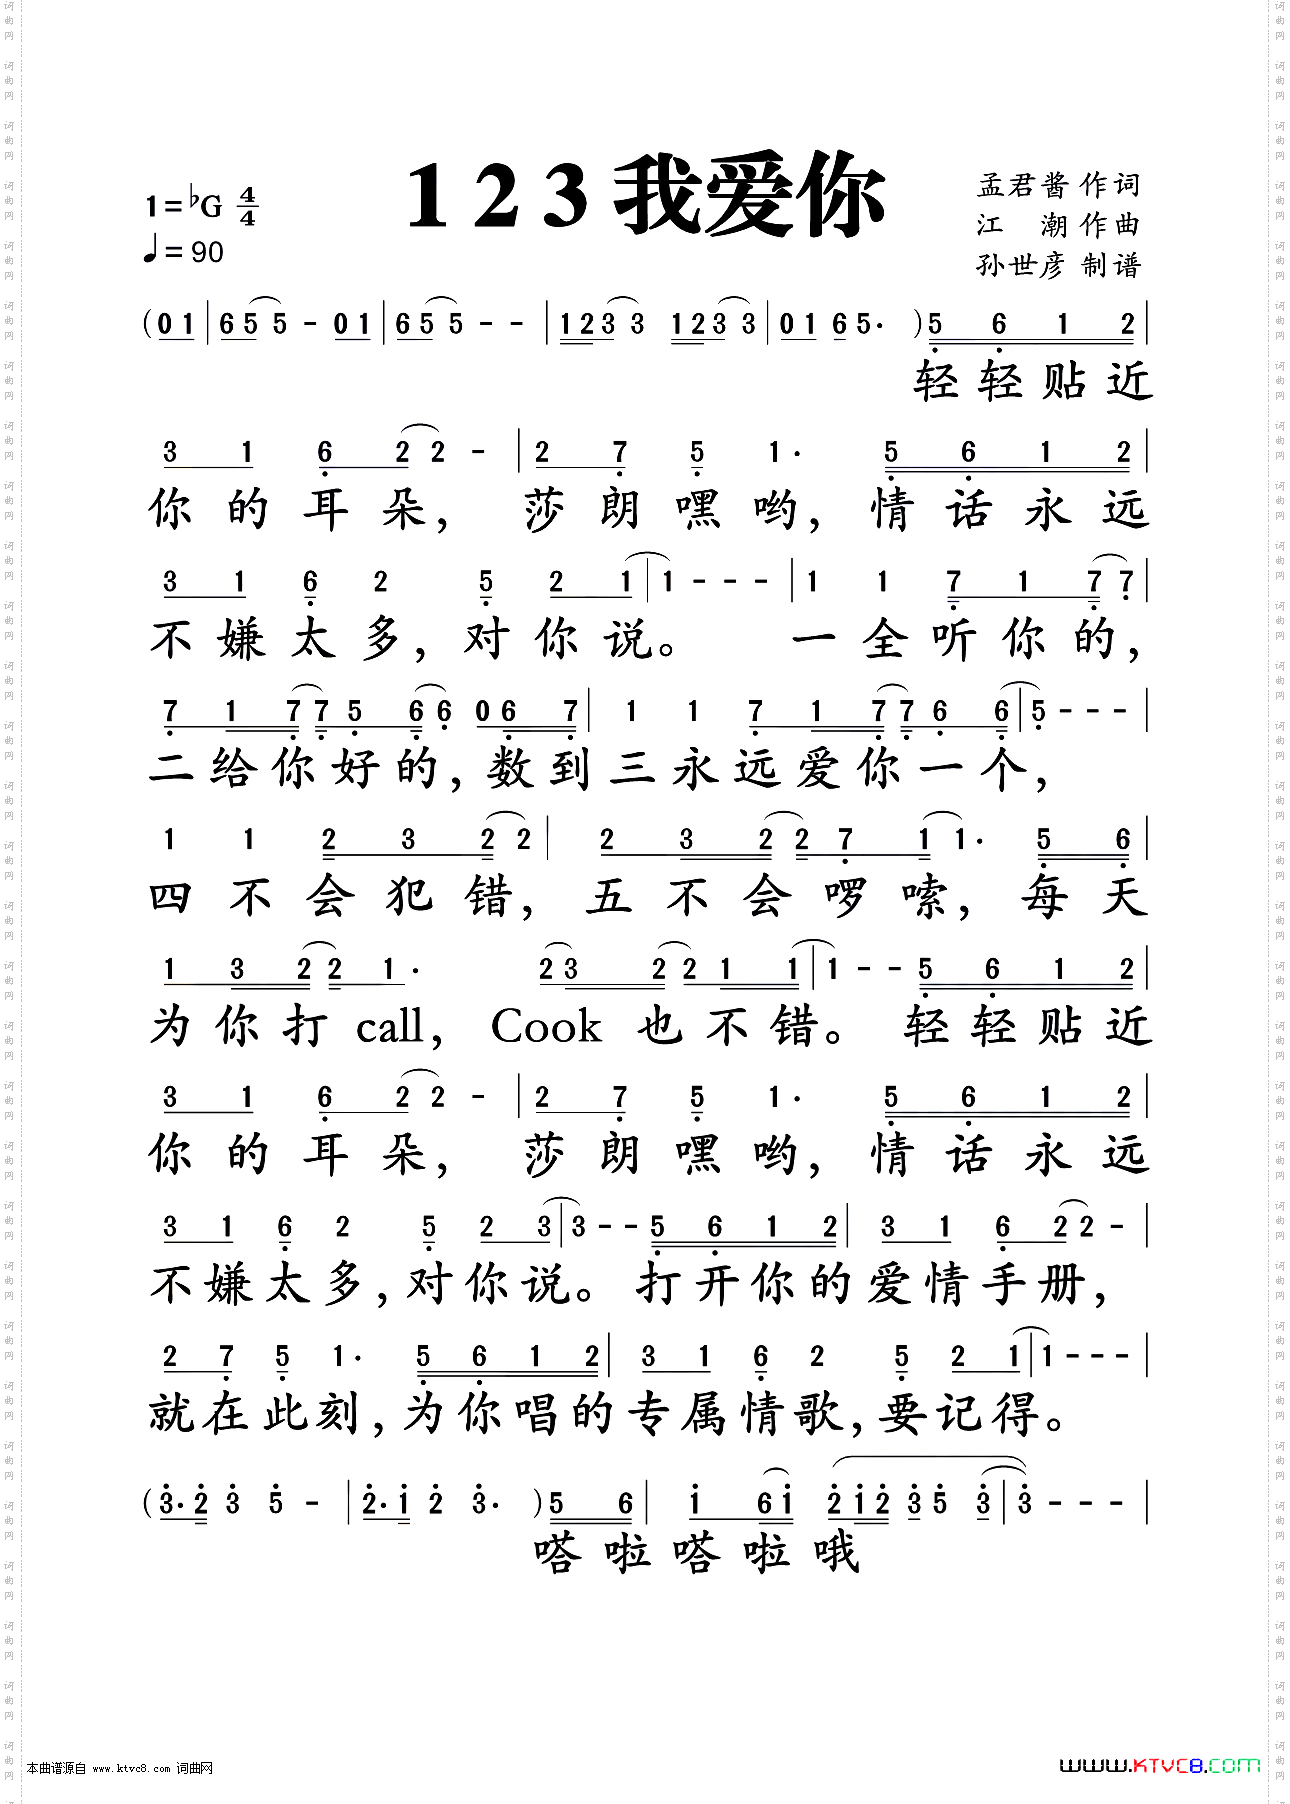 123我爱你
1=♭G 4/4
♩=90
孟君酱 作词
江 潮 作曲
孙世彦 制谱
(0 1|6 5 5 - 0 1|6 5 5 - -|1 2 3 3 1 2 3 3|0 1 6 5· )5 6 1 2|
轻轻贴近
3 1 6 2 2 -|2 7 5 1· 5 6 1 2|
你的耳朵，莎朗嘿哟，情话永远
3 1 6 2 5 2 1|1 - - -|1 1 7 1 7 7|
不嫌太多，对你说。 一全听你的，
7 1 7 7 5 6 6 0 6 7|1 1 7 1 7 7 6 6|5 - - -|
二给你好的，数到三永远爱你一个，
1 1 2 3 2 2|2 3 2 2 7 1 1· 5 6|
四不会犯错，五不会啰嗦，每天
1 3 2 2 1· 2 3 2 2 1 1|1 - - 5 6 1 2|
为你打call，Cook也不错。轻轻贴近
3 1 6 2 2 -|2 7 5 1· 5 6 1 2|
你的耳朵，莎朗嘿哟，情话永远
3 1 6 2 5 2 3|3 - - 5 6 1 2|3 1 6 2 2 -|
不嫌太多，对你说。打开你的爱情手册，
2 7 5 1· 5 6 1 2|3 1 6 2 5 2 1|1 - - -|
就在此刻，为你唱的专属情歌，要记得。
(3· 2 3 5 -|2· 1 2 3· )5 6|1 6 1 2 1 2 3 5 3|3 - - -|
嗒啦嗒啦哦
本曲谱源自 www.ktvc8.com 词曲网
www.KTVC8.com